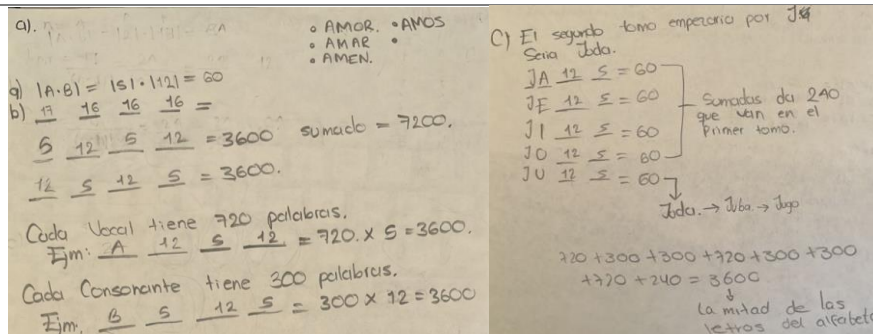 a).
• AMOR. • AMOS
• AMAR •
• AMEN.
a) |A·B| = |5|·|12| = 60
b) 17 16 16 16 =
5 12 5 12 = 3600 sumado = 7200.
12 5 12 5 = 3600.
Cada Vocal tiene 720 palabras.
Ejm: A 12 5 12 = 720. x 5 = 3600.
Cada Consonante tiene 300 palabras.
Ejm. B 5 12 5 = 300 x 12 = 3600
C) El segundo tomo empezaria por
Seria Juda.
JA 12 5 = 60
JE 12 5 = 60
JI 12 5 = 60
JO 12 5 = 60
JU 12 5 = 60
Sumadas da 240
que van en el
Primer tomo.
Juda. → Juba. → Jugo
720 + 300 + 300 + 720 + 300 + 300
+ 720 + 240 = 3600
la mitad de las
letras del alfabeto